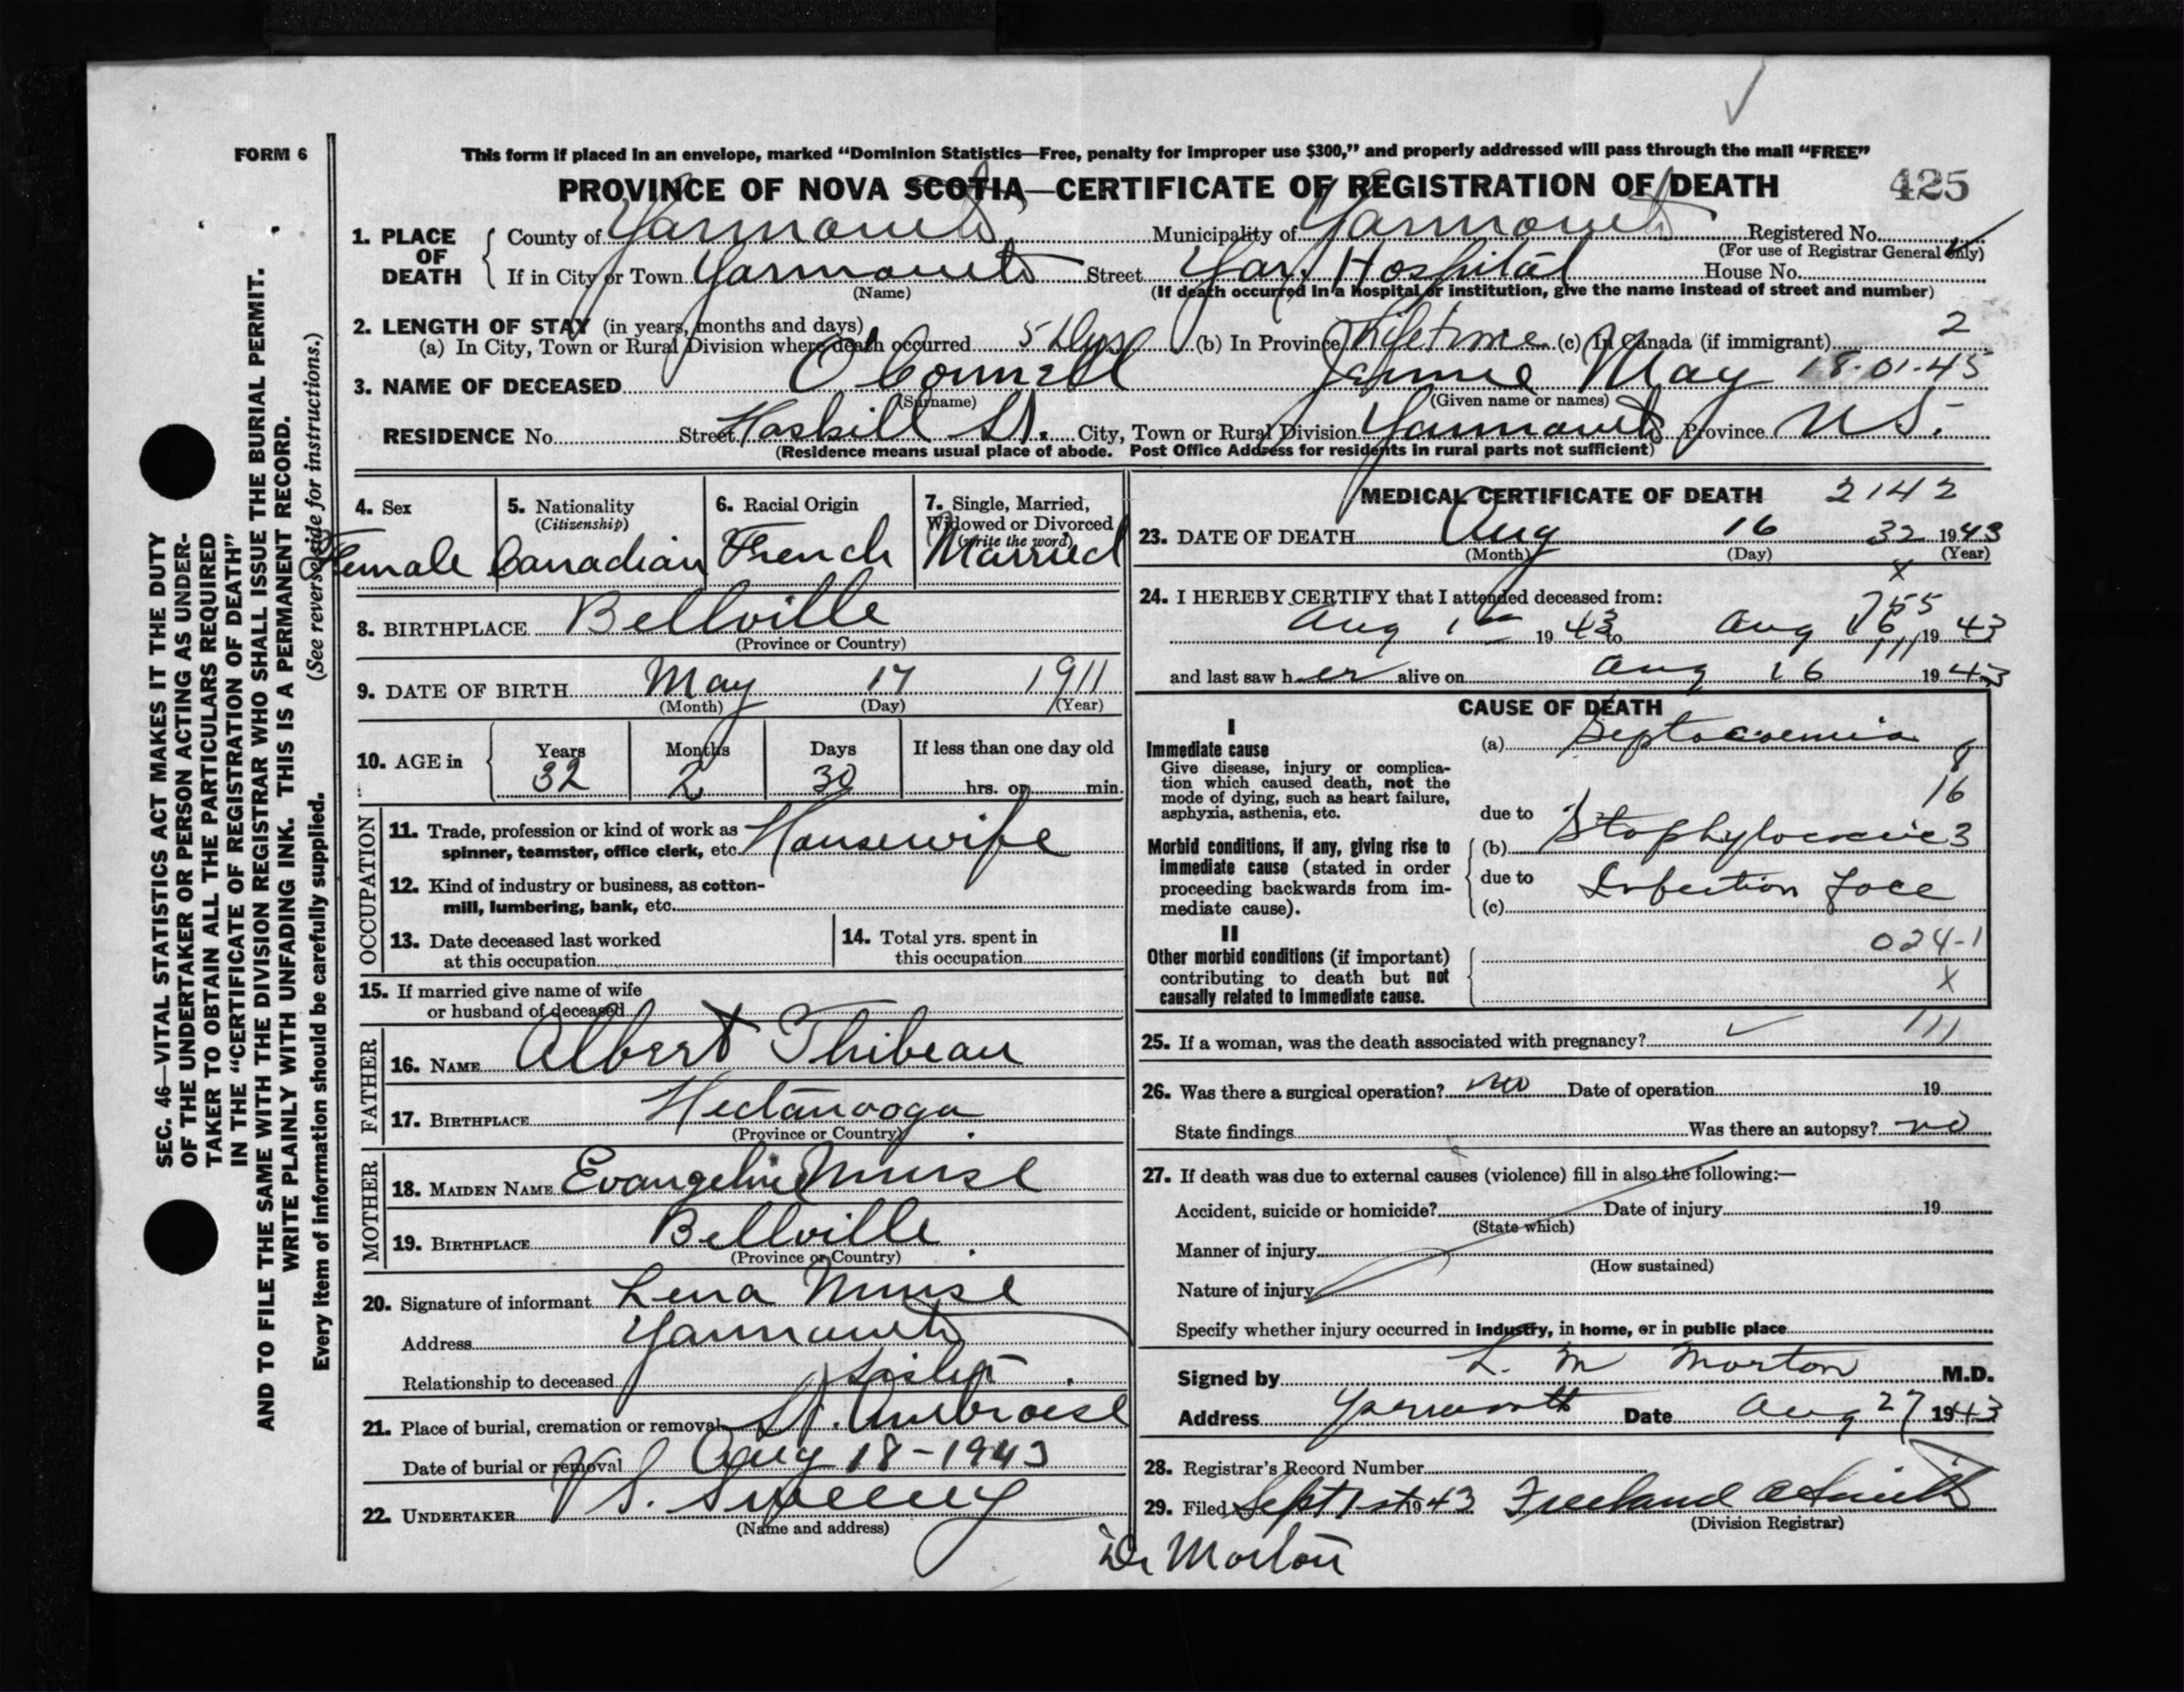 FORM 6
This form if placed in an envelope, marked “Dominion Statistics—Free, penalty for improper use $300,” and properly addressed will pass through the mail “FREE”
PROVINCE OF NOVA SCOTIA—CERTIFICATE OF REGISTRATION OF DEATH 425
1. PLACE OF DEATH County of Yarmouth Municipality of Yarmouth Registered No.
(For use of Registrar General only)
If in City or Town Yarmouth Street Yar. Hospital House No.
(Name) (If death occurred in a hospital or institution, give the name instead of street and number)
2. LENGTH OF STAY (in years, months and days)
(a) In City, Town or Rural Division where death occurred 5 Days (b) In Province Lifetime (c) In Canada (if immigrant) 2
3. NAME OF DECEASED O'Connell Jennie May 18-01-45
(Surname) (Given name or names)
RESIDENCE No. Street Haskill St. City, Town or Rural Division Yarmouth Province N S.
(Residence means usual place of abode. Post Office Address for residents in rural parts not sufficient)
4. Sex 5. Nationality 6. Racial Origin 7. Single, Married,
(Citizenship) Widowed or Divorced
(write the word)
Female Canadian French Married
8. BIRTHPLACE Bellville
(Province or Country)
9. DATE OF BIRTH May 17 1911
(Month) (Day) (Year)
10. AGE in Years Months Days If less than one day old
32 2 30 hrs. or min.
OCCUPATION
11. Trade, profession or kind of work as
spinner, teamster, office clerk, etc. Housewife
12. Kind of industry or business, as cotton-
mill, lumbering, bank, etc.
13. Date deceased last worked
at this occupation
14. Total yrs. spent in
this occupation
15. If married give name of wife
or husband of deceased
FATHER
16. NAME Albert Thibeau
17. BIRTHPLACE Hectanooga
(Province or Country)
MOTHER
18. MAIDEN NAME Evangeline Muise
19. BIRTHPLACE Bellville
(Province or Country)
20. Signature of informant Lena Muise
Address Yarmouth
Relationship to deceased Sister
21. Place of burial, cremation or removal St. Ambroise
Date of burial or removal Aug 18-1943
22. UNDERTAKER V S. Sweeney
(Name and address)
MEDICAL CERTIFICATE OF DEATH 2142
23. DATE OF DEATH Aug 16 32 1943
(Month) (Day) (Year)
x
24. I HEREBY CERTIFY that I attended deceased from:
755
Aug 1st 1943 to Aug 16 1943
111
and last saw her alive on Aug 16 1943
CAUSE OF DEATH
I
Immediate cause
Give disease, injury or complica-
tion which caused death, not the
mode of dying, such as heart failure,
asphyxia, asthenia, etc.
(a) Septocaemia
8
16
due to
Morbid conditions, if any, giving rise to
immediate cause (stated in order
proceeding backwards from im-
mediate cause).
(b) Staphylococcic 3
due to Infection face
(c)
II
Other morbid conditions (if important)
contributing to death but not
causally related to immediate cause.
024-1
X
25. If a woman, was the death associated with pregnancy? 111
26. Was there a surgical operation? no Date of operation 19
State findings Was there an autopsy? no
27. If death was due to external causes (violence) fill in also the following:—
Accident, suicide or homicide? Date of injury 19
(State which)
Manner of injury
(How sustained)
Nature of injury
Specify whether injury occurred in industry, in home, or in public place
Signed by L. M Morton M.D.
Address Yarmouth Date Aug 27 1943
28. Registrar's Record Number
29. Filed Sept 1st 1943 Freeland A Smith
(Division Registrar)
Dr Morton
SEC. 46—VITAL STATISTICS ACT MAKES IT THE DUTY
OF THE UNDERTAKER OR PERSON ACTING AS UNDER-
TAKER TO OBTAIN ALL THE PARTICULARS REQUIRED
IN THE “CERTIFICATE OF REGISTRATION OF DEATH”
AND TO FILE THE SAME WITH THE DIVISION REGISTRAR WHO SHALL ISSUE THE BURIAL PERMIT.
WRITE PLAINLY WITH UNFADING INK. THIS IS A PERMANENT RECORD.
Every item of information should be carefully supplied. (See reverse side for instructions.)